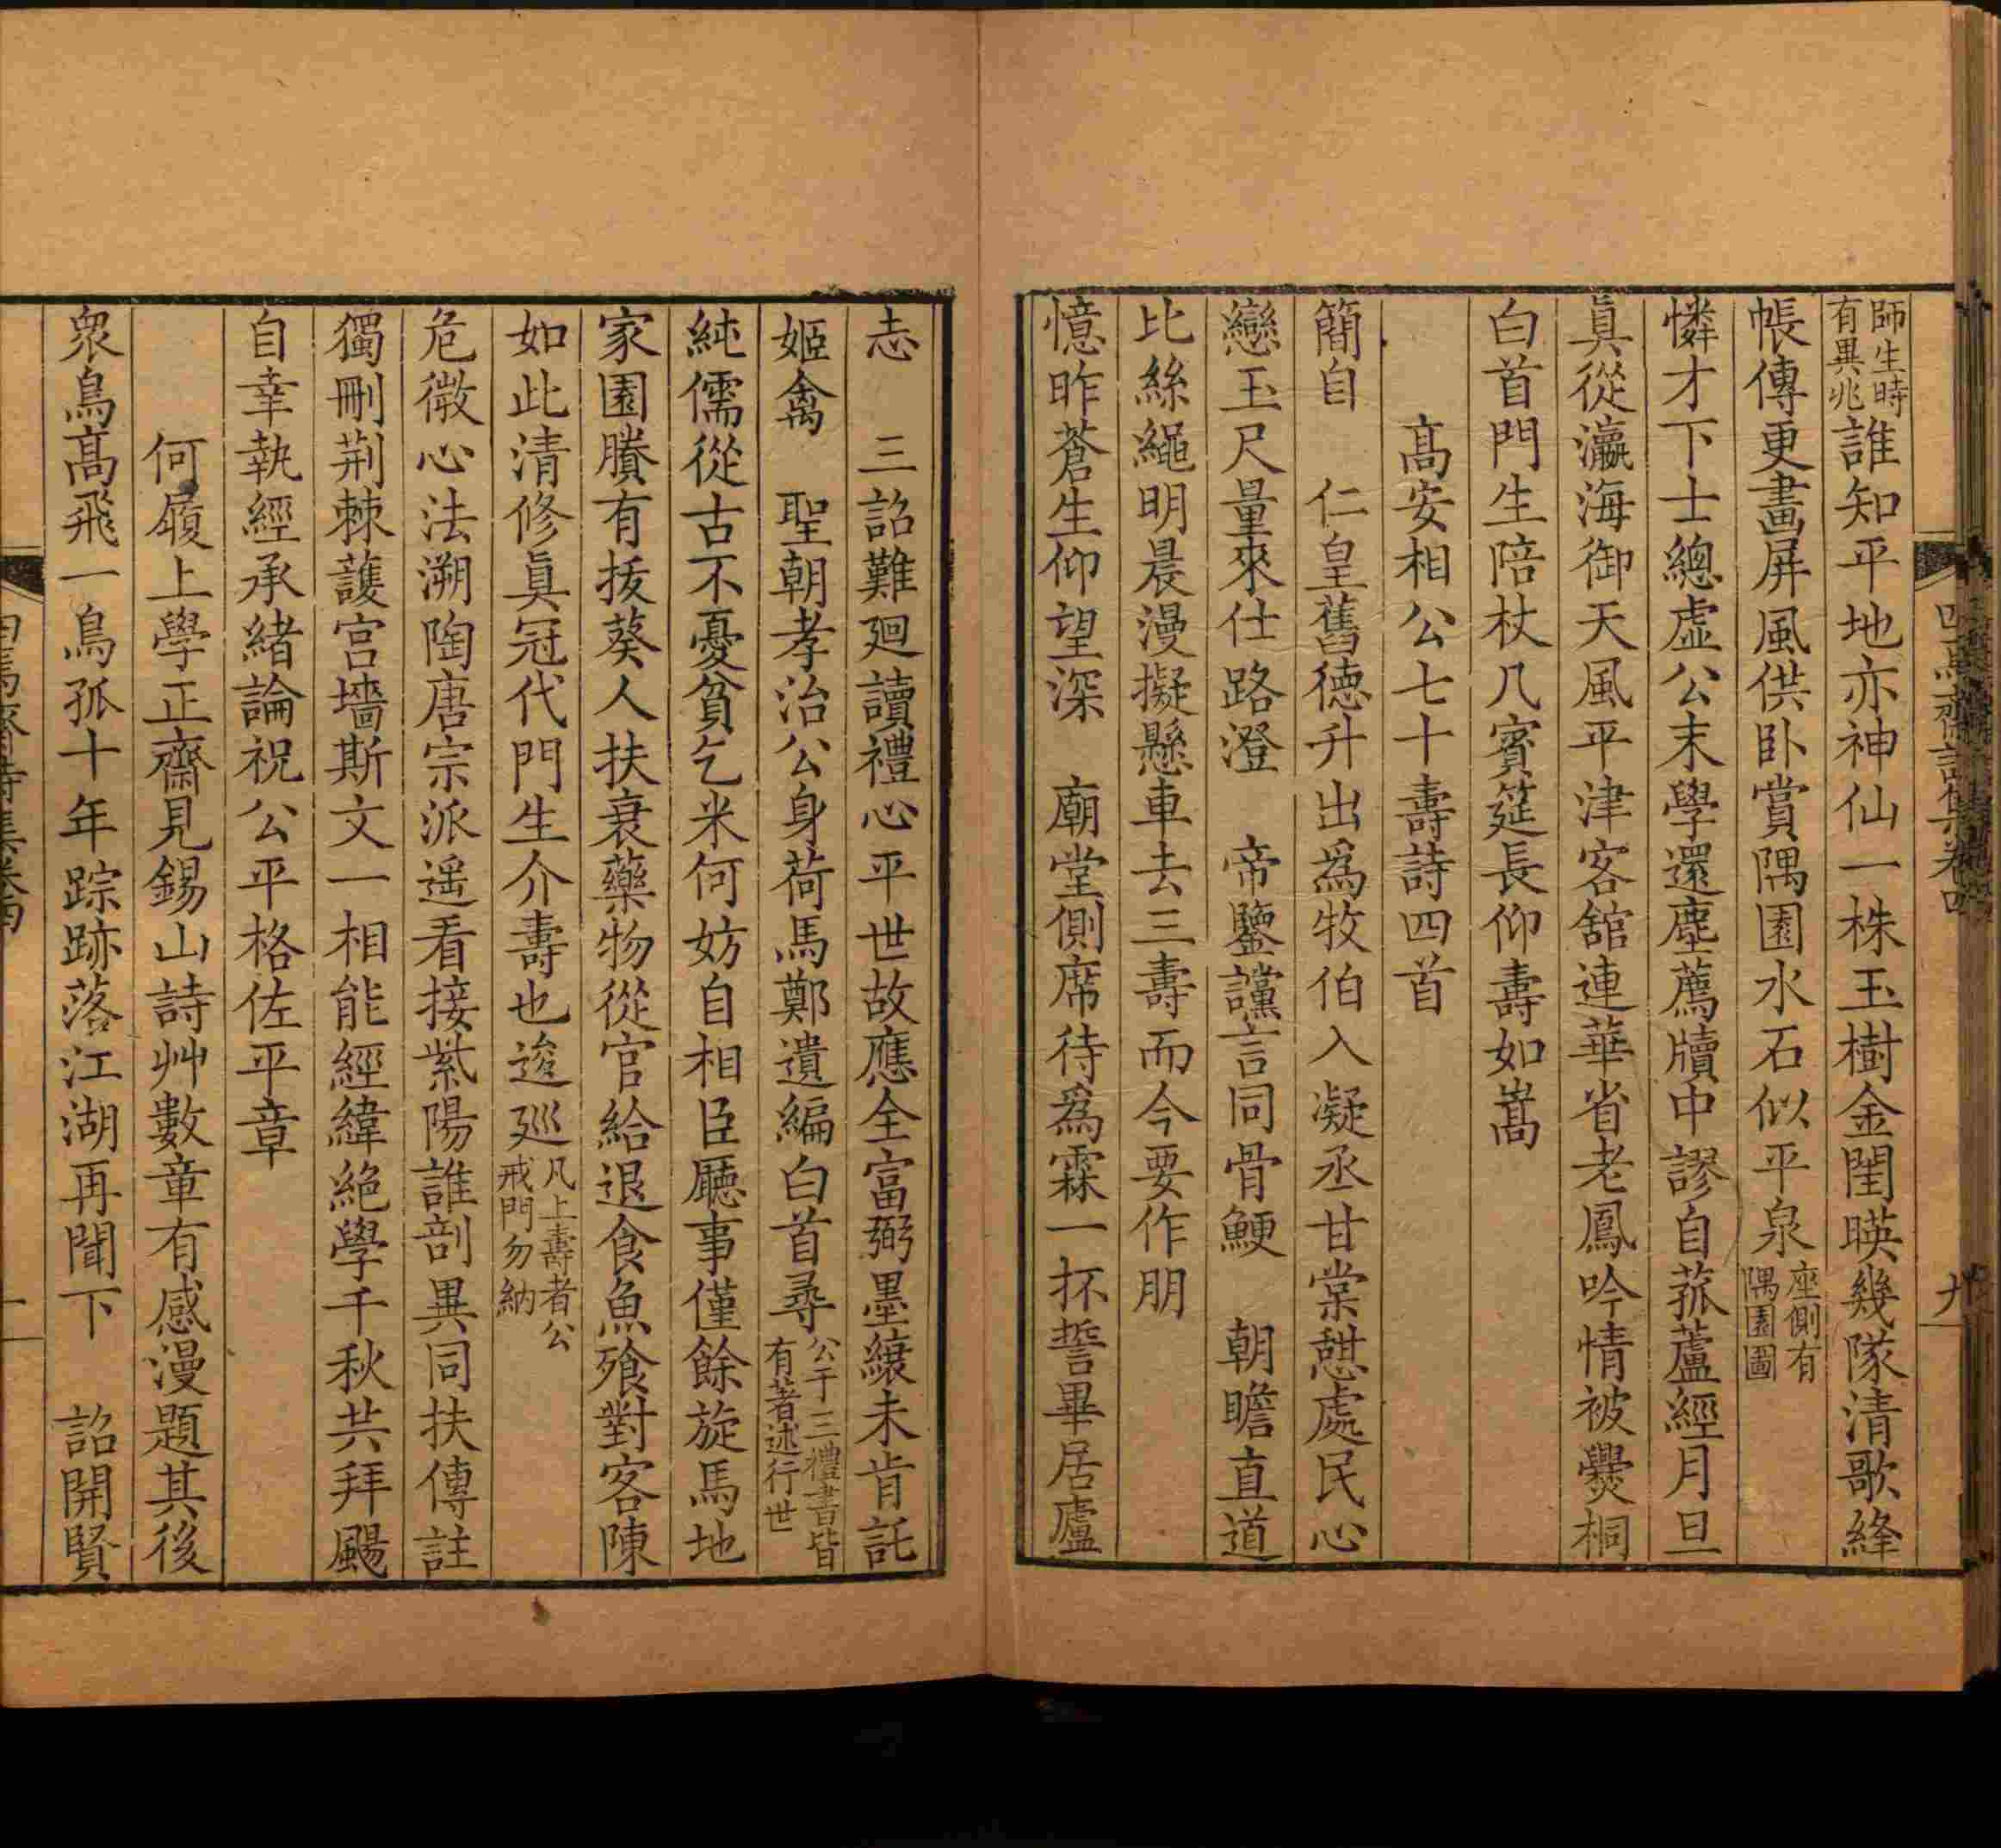 師生時有異兆誰知平地亦神仙一株玉樹金閨暎幾隊清歌絳
帳傳更畫屛風供卧賞隅園水石似平泉座側有隅園圖
憐才下士總虛公末學還塵薦牘中謬自菰蘆經月旦
眞從瀛海御天風平津客舘連華省老鳳吟情被爨桐
白首門生陪杖几賓筵長仰壽如嵩
高安相公七十壽詩四首
簡自　仁皇舊德升出爲牧伯入凝丞甘棠憇處民心
戀玉尺量來仕路澄　帝鑒讜言同骨鯁　朝瞻直道
比絲繩明晨漫擬懸車去三壽而今要作朋
憶昨蒼生仰望深　廟堂側席待爲霖一抔誓畢居廬
志　三詔難廻讀禮心平世故應全富弼墨縗未肯託
姬禽　聖朝孝治公身荷馬鄭遺編白首尋公于三禮書皆有著述行世
純儒從古不憂貧乞米何妨自相臣廳事僅餘旋馬地
家園賸有拔葵人扶衰藥物從官給退食魚飱對客陳
如此清修眞冠代門生介壽也逡廵凡上壽者公戒門勿納
危微心法溯陶唐宗派遥看接紫陽誰剖異同扶傳註
獨刪荆棘護宫墻斯文一相能經緯絶學千秋共拜颺
自幸執經承緒論祝公平格佐平章
何履上學正齋見錫山詩艸數章有感漫題其後
衆鳥高飛一鳥孤十年踪跡落江湖再聞下　詔開賢
四焉齋詩集卷四
九